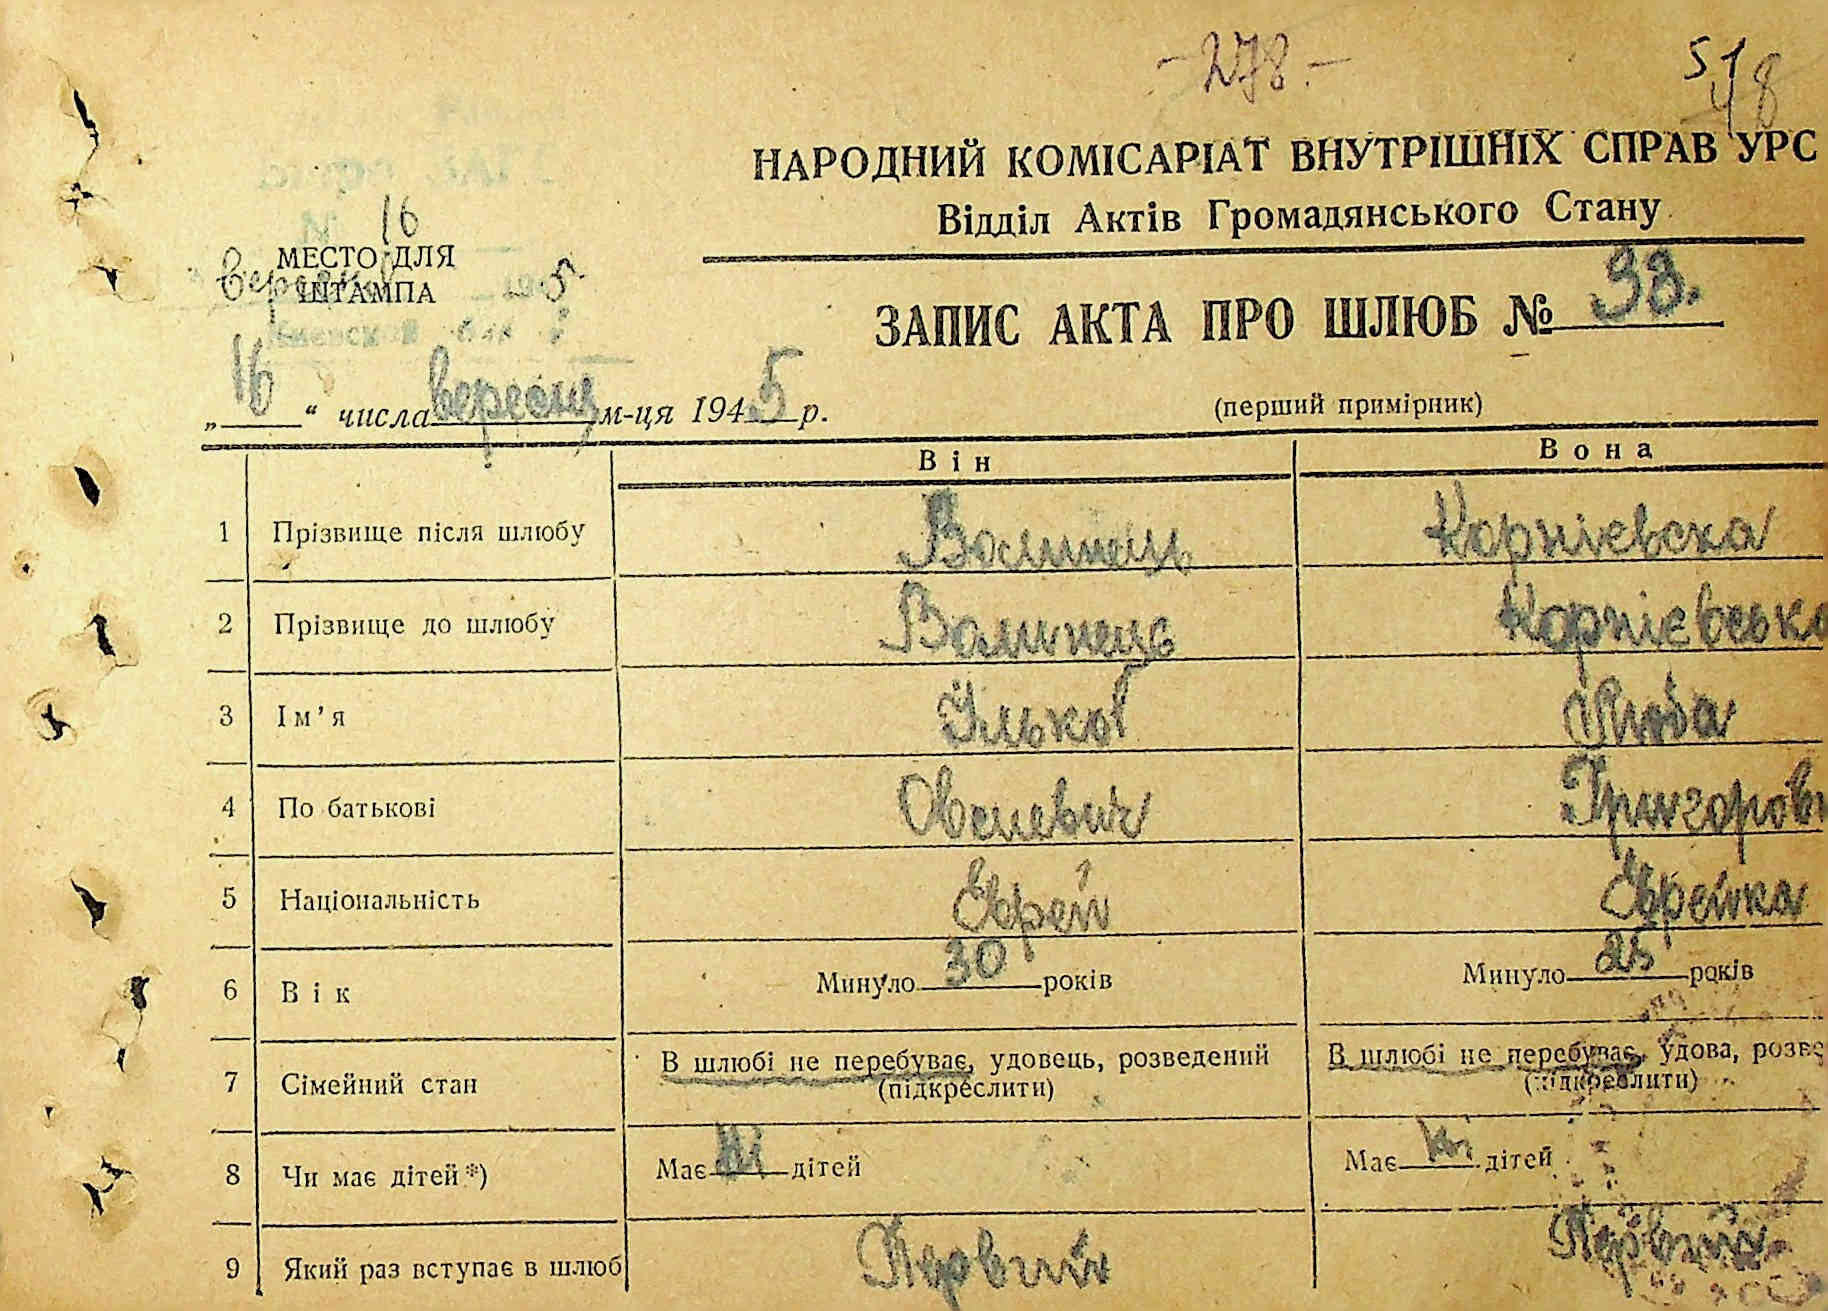 -278.-
51
48
НАРОДНИЙ КОМІСАРІАТ ВНУТРІШНІХ СПРАВ УРС
Відділ Актів Громадянського Стану
16
МЕСТО ДЛЯ
ШТАМПА
вересня 5
ЗАПИС АКТА ПРО ШЛЮБ № 98.
„16“ числа вересня м-ця 1945 р.
(перший примірник)
Він Вона
1 Прізвище після шлюбу Волинець Корнієвска
2 Прізвище до шлюбу Волинець Корнієвська
3 Ім’я Ілько Люба
4 По батькові Овсиевич Григоров
5 Національність Єврей Єврейка
6 Вік Минуло 30 років Минуло 25 років
7 Сімейний стан В шлюбі не перебуває, удовець, розведений В шлюбі не перебуває, удова, розве
(підкреслити) (підкреслити)
8 Чи має дітей*) Має ні дітей Має ні дітей
9 Який раз вступає в шлюб Первий Первий